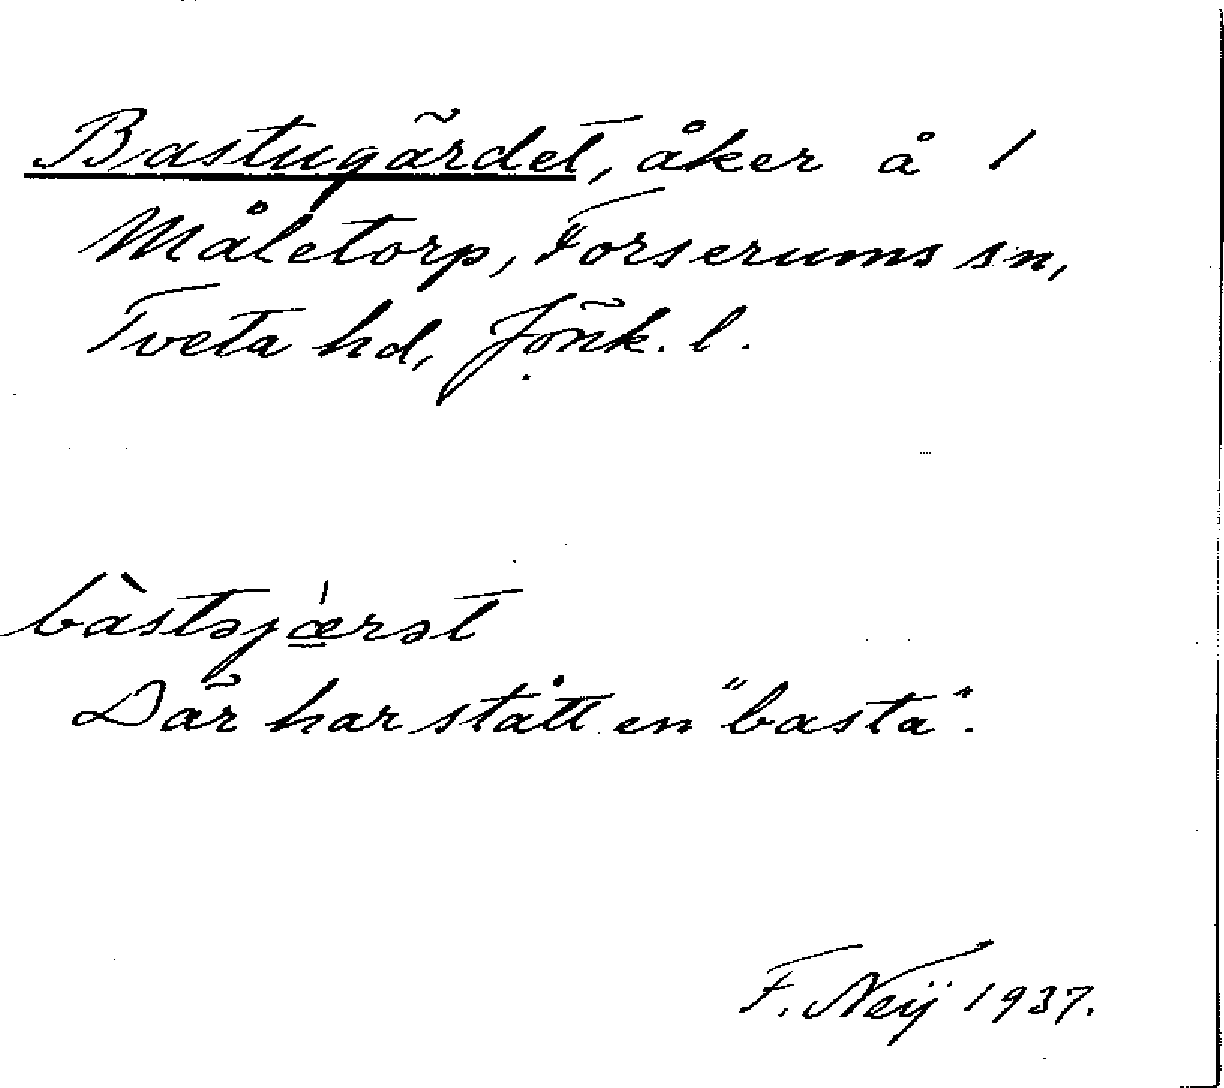 Bastugärdet, åker å 1
Måletorp, Forserums sn,
Tveta hd, Jönk. l.
bàstəjæ̠̍rət
Där har stått en "basta".
F. Neij 1937.